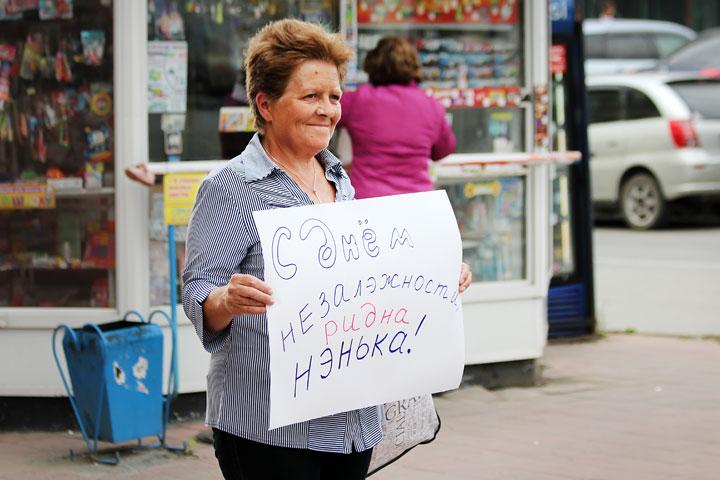 С Днём
нЕЗАЛЭЖНОСТИ,
РИДНА
НЭНЬКА!